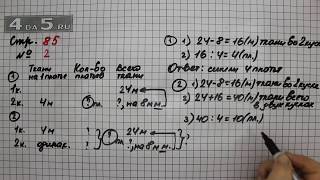 4DA5.RU
Стр. 85
№ 2
Ткани на 1 платье
Кол-во платьев
Всего ткани
①
1к.
24м
2к. 4м ?пл. ?, на 8м м.
②
1к. 4м ? 24м
2к. одинак. ? ?, на 8м м. ?
① 1) 24-8=16(м) ткани во 2 куске
2) 16:4=4(пл.)
Ответ: сшили 4 платья
② 1) 24-8=16(м) ткани во 2 куске
2) 24+16=40(м) ткани всего
в двух кусках
3) 40:4=10(пл.)